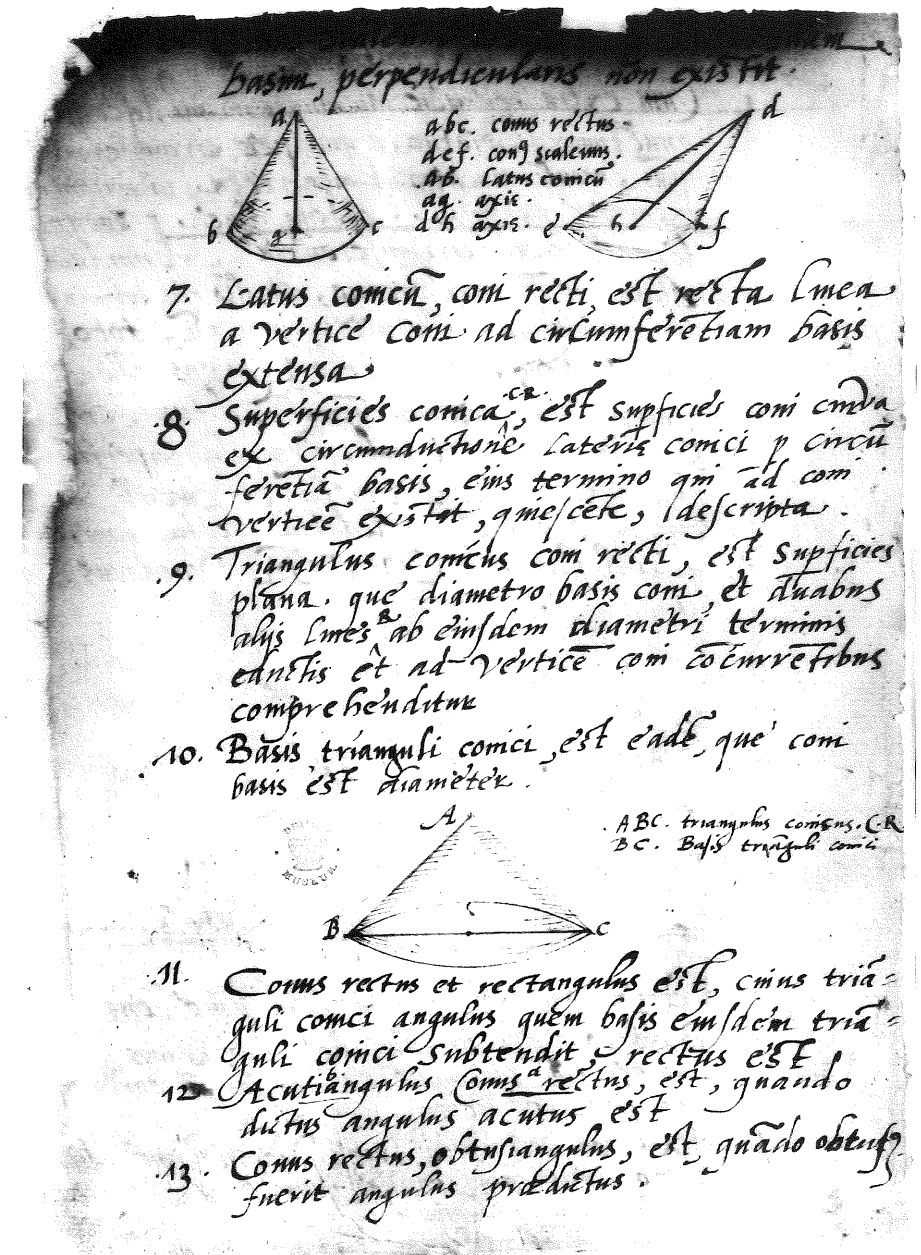 basim, perpendicularis non existit.
a
d
abc. conus rectus.
def. conꝰ scalenus.
ab. Latus conicū
ag. axis.
dh axis.
b
g
c
e
h
f
7. Latus conicū, coni recti, est recta linea
a vertice coni ad circumferētiam basis
extensa
8. Superficies conica C.R., est supficies coni curva
ex circumductione lateris conici p circū
ferētiā basis, eius termino qui ad coni
verticē existit, quiescēte, descripta.
9. Triangulus conicus coni recti, est supficies
plana. que diametro basis coni et duabus
alijs lines R ab eiusdem diametri terminis
eductis et ad verticē coni cōcurrētibus
comprehenditur
10. Basis trianguli conici, est eadē, que coni
basis est diameter.
A
ABC. triangulus conicus. C.R
BC. Basis triāguli conici
MUSEUM
B
C
11. Conus rectus et rectangulus est, cuius triā=
guli conici angulus quem basis eiusdem triā=
guli conici subtendit, rectus est
12 Acutiangulus b Conus a rectus, est, quando
dictus angulus acutus est
13. Conus rectus, obtusiangulus, est, quādo obtusꝰ
fuerit angulus prædictus.